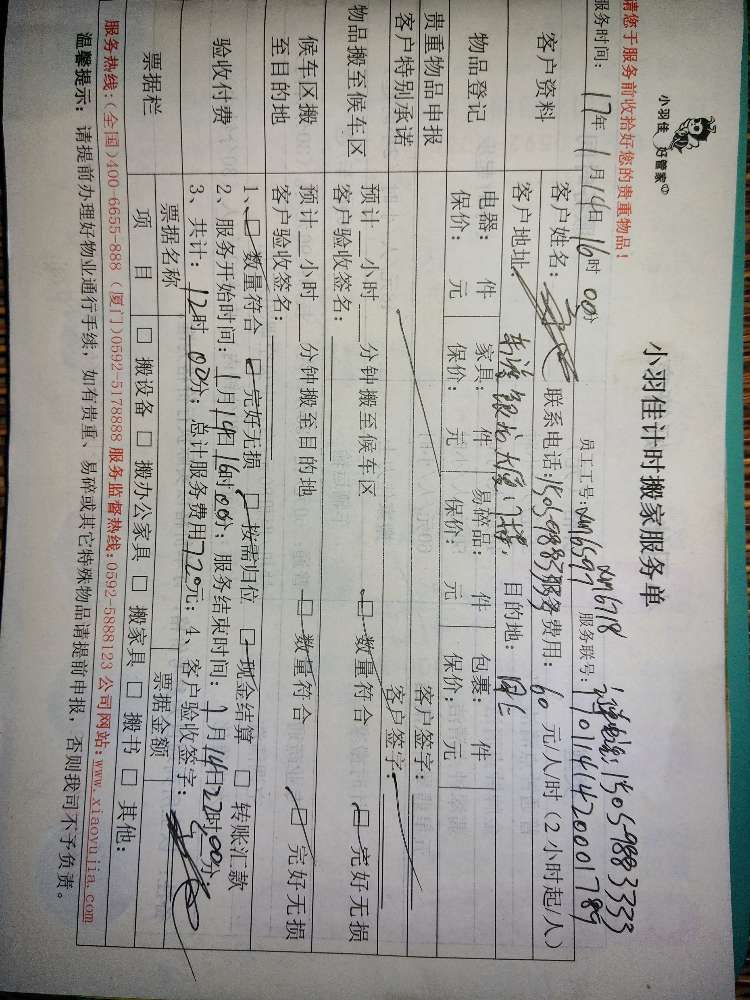 请您于服务前收拾好您的贵重物品！
小羽佳 好管家
小羽佳计时搬家服务单
xm6718 15059883333
服务时间： 17年 1月14日 16时 00分 员工工号：xm6597 服务联号：1701141420001789
客户资料 客户姓名： 联系电话：15059883333 服务费用：60 元/人/时（2小时起/人）
客户地址： 目的地：
物品登记 电器： 件 家具： 件 易碎品： 件 包裹： 件
保价： 元 保价： 元 保价： 元 保价： 元
贵重物品申报 客户签字：
客户特别承诺 客户签字：
物品搬至候车区 预计 小时 分钟搬至候车区 □数量符合 □完好无损
客户验收签名：
候车区搬至目的地 预计 小时 分钟搬至目的地 □数量符合 □完好无损
客户验收签名：
验收付费 1、□数量符合 □完好无损 □按需归位 □现金结算 □转账汇款
2、服务开始时间：1月14日16时00分；服务结束时间：1月14日22时00分；
3、共计：12时00分；总计服务费用720元；4、客户验收签字：
票据栏 票据名称 票据金额
项目 □搬设备 □搬办公家具 □搬家具 □搬书 □其他：
服务热线：（全国）400-6655-888（厦门）0592-5178888 服务监督热线：0592-5888123 公司网站：www.xiaoyujia.com
温馨提示：请提前办理好物业通行手续，如有贵重、易碎或其它特殊物品请提前申报，否则我司不予负责。